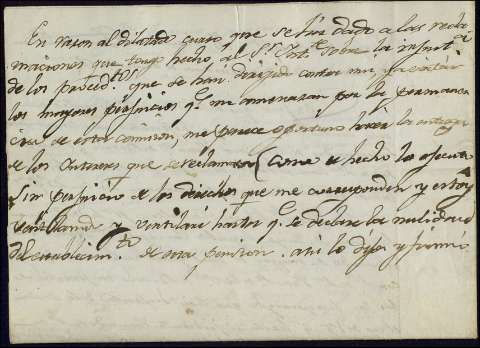 En razon al dilatado curso que se há dado a las recla-
maciones que tengo hecho al Sr. Int.e sobre la injust.a
de los proced.tos que se han dirigido contra mi, y a evitar
los mayores perjuicios q.e me amenazan por la permanen
cia de esta comision, me parece oportuno hacer la entrega
de los intereses que se reclaman (como de hecho lo ofrezco)
sin perjuicio de los derechos que me corresponden y estoy
ventilando y ventilaré hasta q.e se declare la nulidad
del establecim.to de esta pension. asi lo dijo y firmó